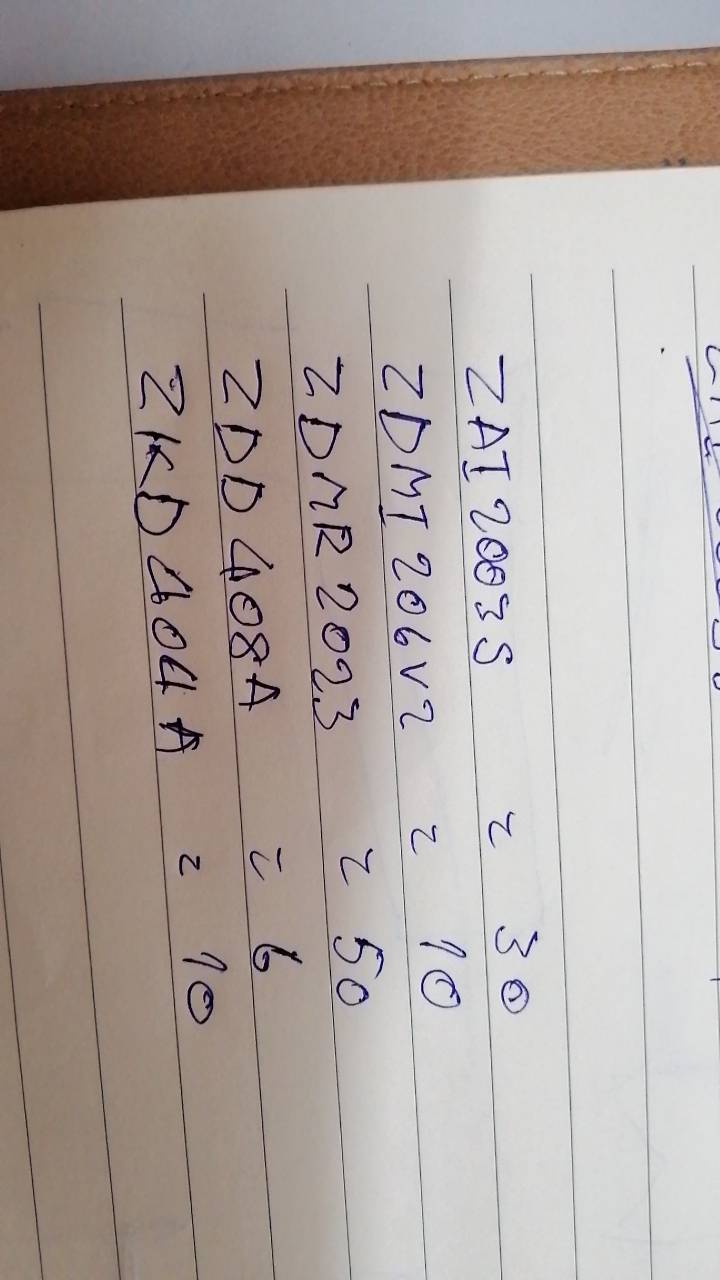 ZAI 2003S = 30
ZDMI 206V2 = 10
ZDMR 2023 = 50
ZDD 408A = 6
ZKD 404A = 10